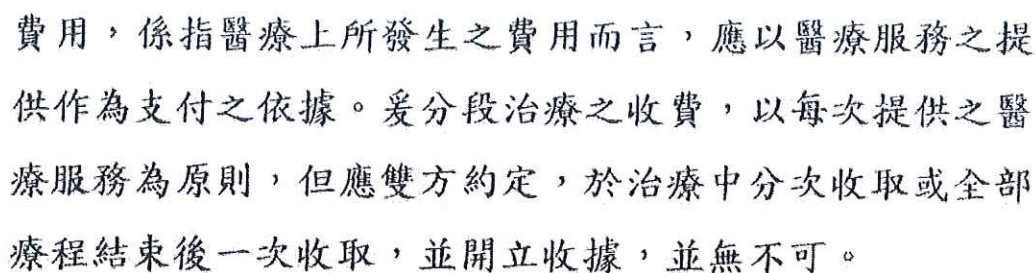 費用，係指醫療上所發生之費用而言，應以醫療服務之提
供作為支付之依據。爰分段治療之收費，以每次提供之醫
療服務為原則，但應雙方約定，於治療中分次收取或全部
療程結束後一次收取，並開立收據，並無不可。